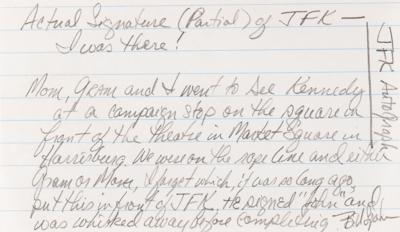 Actual Signature (Partial) of JFK —
I was there!
Mom, Gram and I went to see Kennedy
at a campaign stop on the square in
front of the theatre in Market Square in
Harrisburg. We were on the rope line and either
Gram or Mom, I forget which, it was so long ago,
put this in front of JFK. He signed "John" and
was whisked away before completing
JFK Autograph